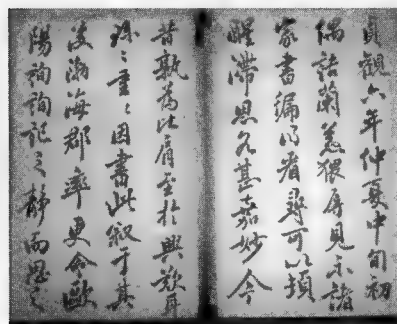 貞觀六年仲夏中旬初
偶詣蘭惹猥辱見示諸
家書編尋可以
醒滯思甚嘉妙今
昔孰為比肩至於興歎耳
珎〻重〻因書此叙于其
後渤海郡率更令歐
陽詢詢記之靜而思之